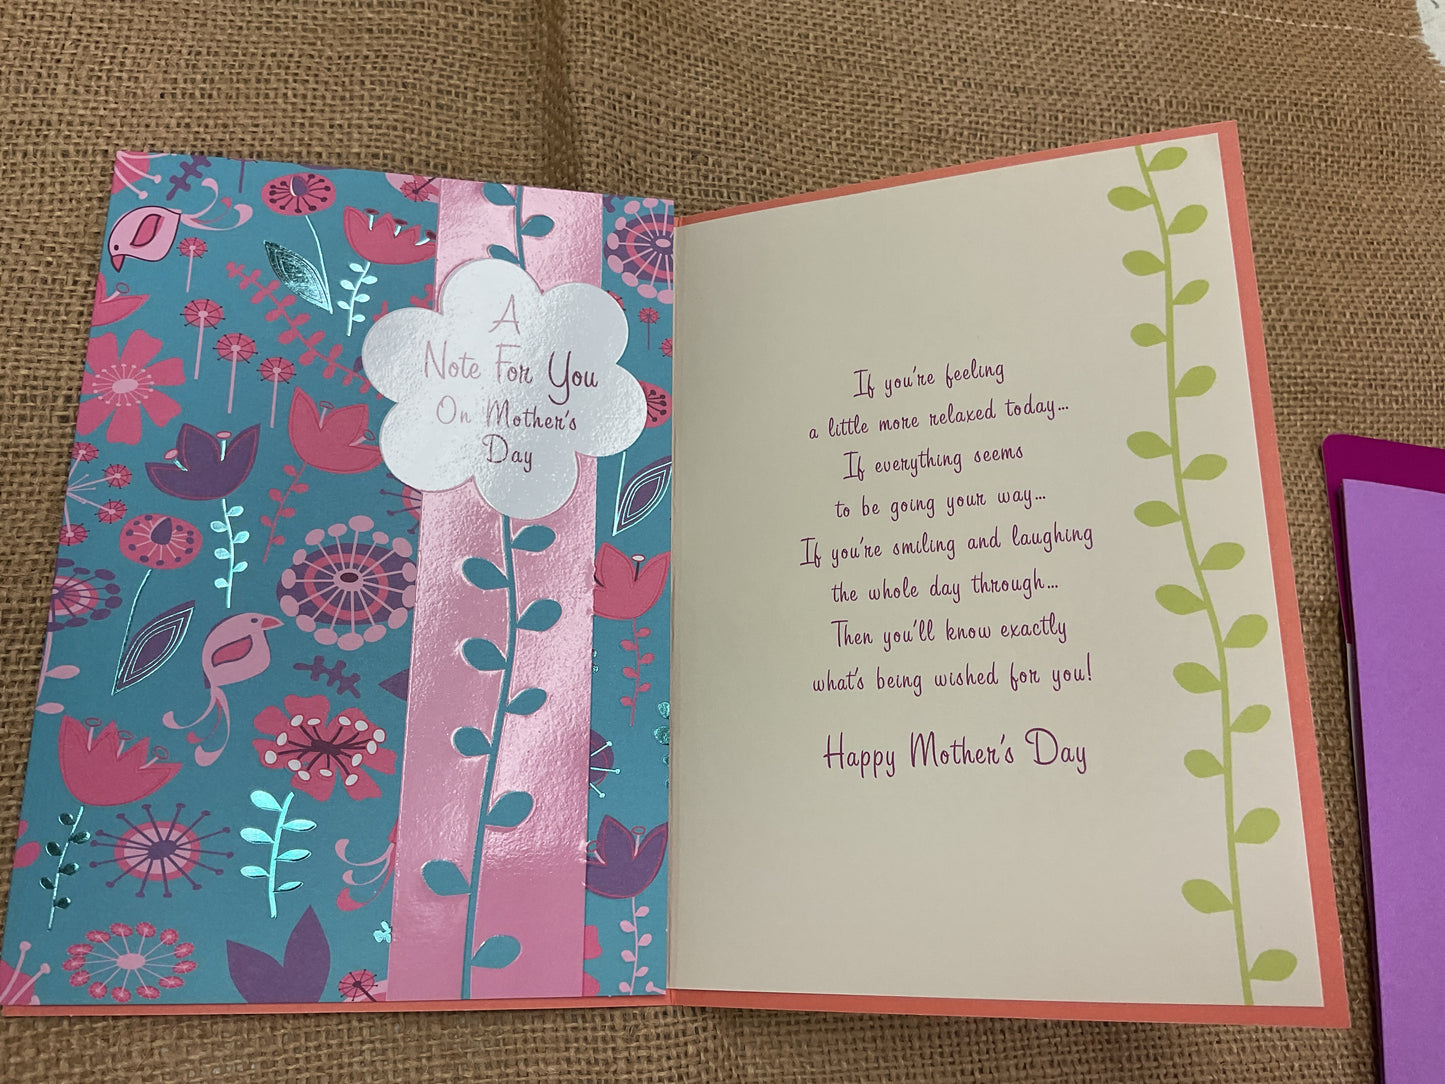 A
Note For You
On Mother's
Day
If you're feeling
a little more relaxed today...
If everything seems
to be going your way...
If you're smiling and laughing
the whole day through...
Then you'll know exactly
what's being wished for you!
Happy Mother's Day